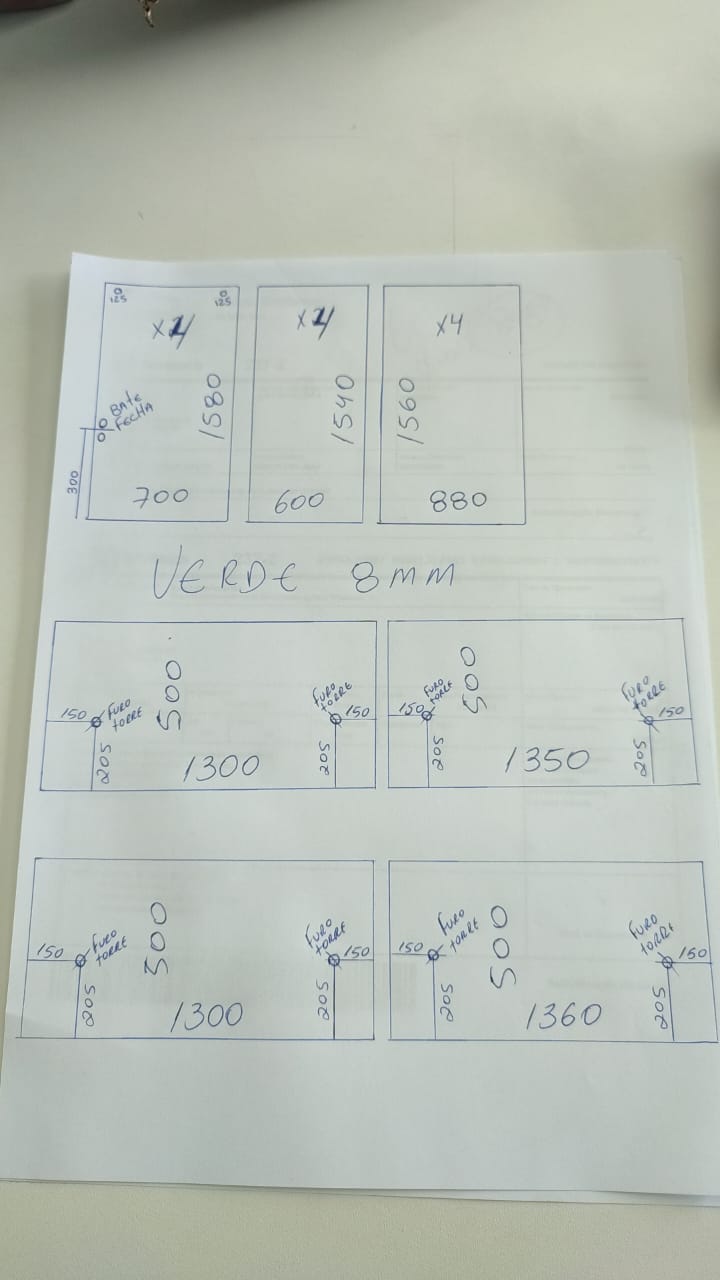 125
125
x4
BATE
FECHA
1580
300
700
x4
1540
600
x4
1560
880
VERDE 8MM
150
FURO
TORRE
500
205
1300
FURO
TORRE
150
205
150
FURO
TORRE
500
205
1350
FURO
TORRE
150
205
150
FURO
TORRE
500
205
1300
FURO
TORRE
150
205
150
FURO
TORRE
500
205
1360
FURO
TORRE
150
205